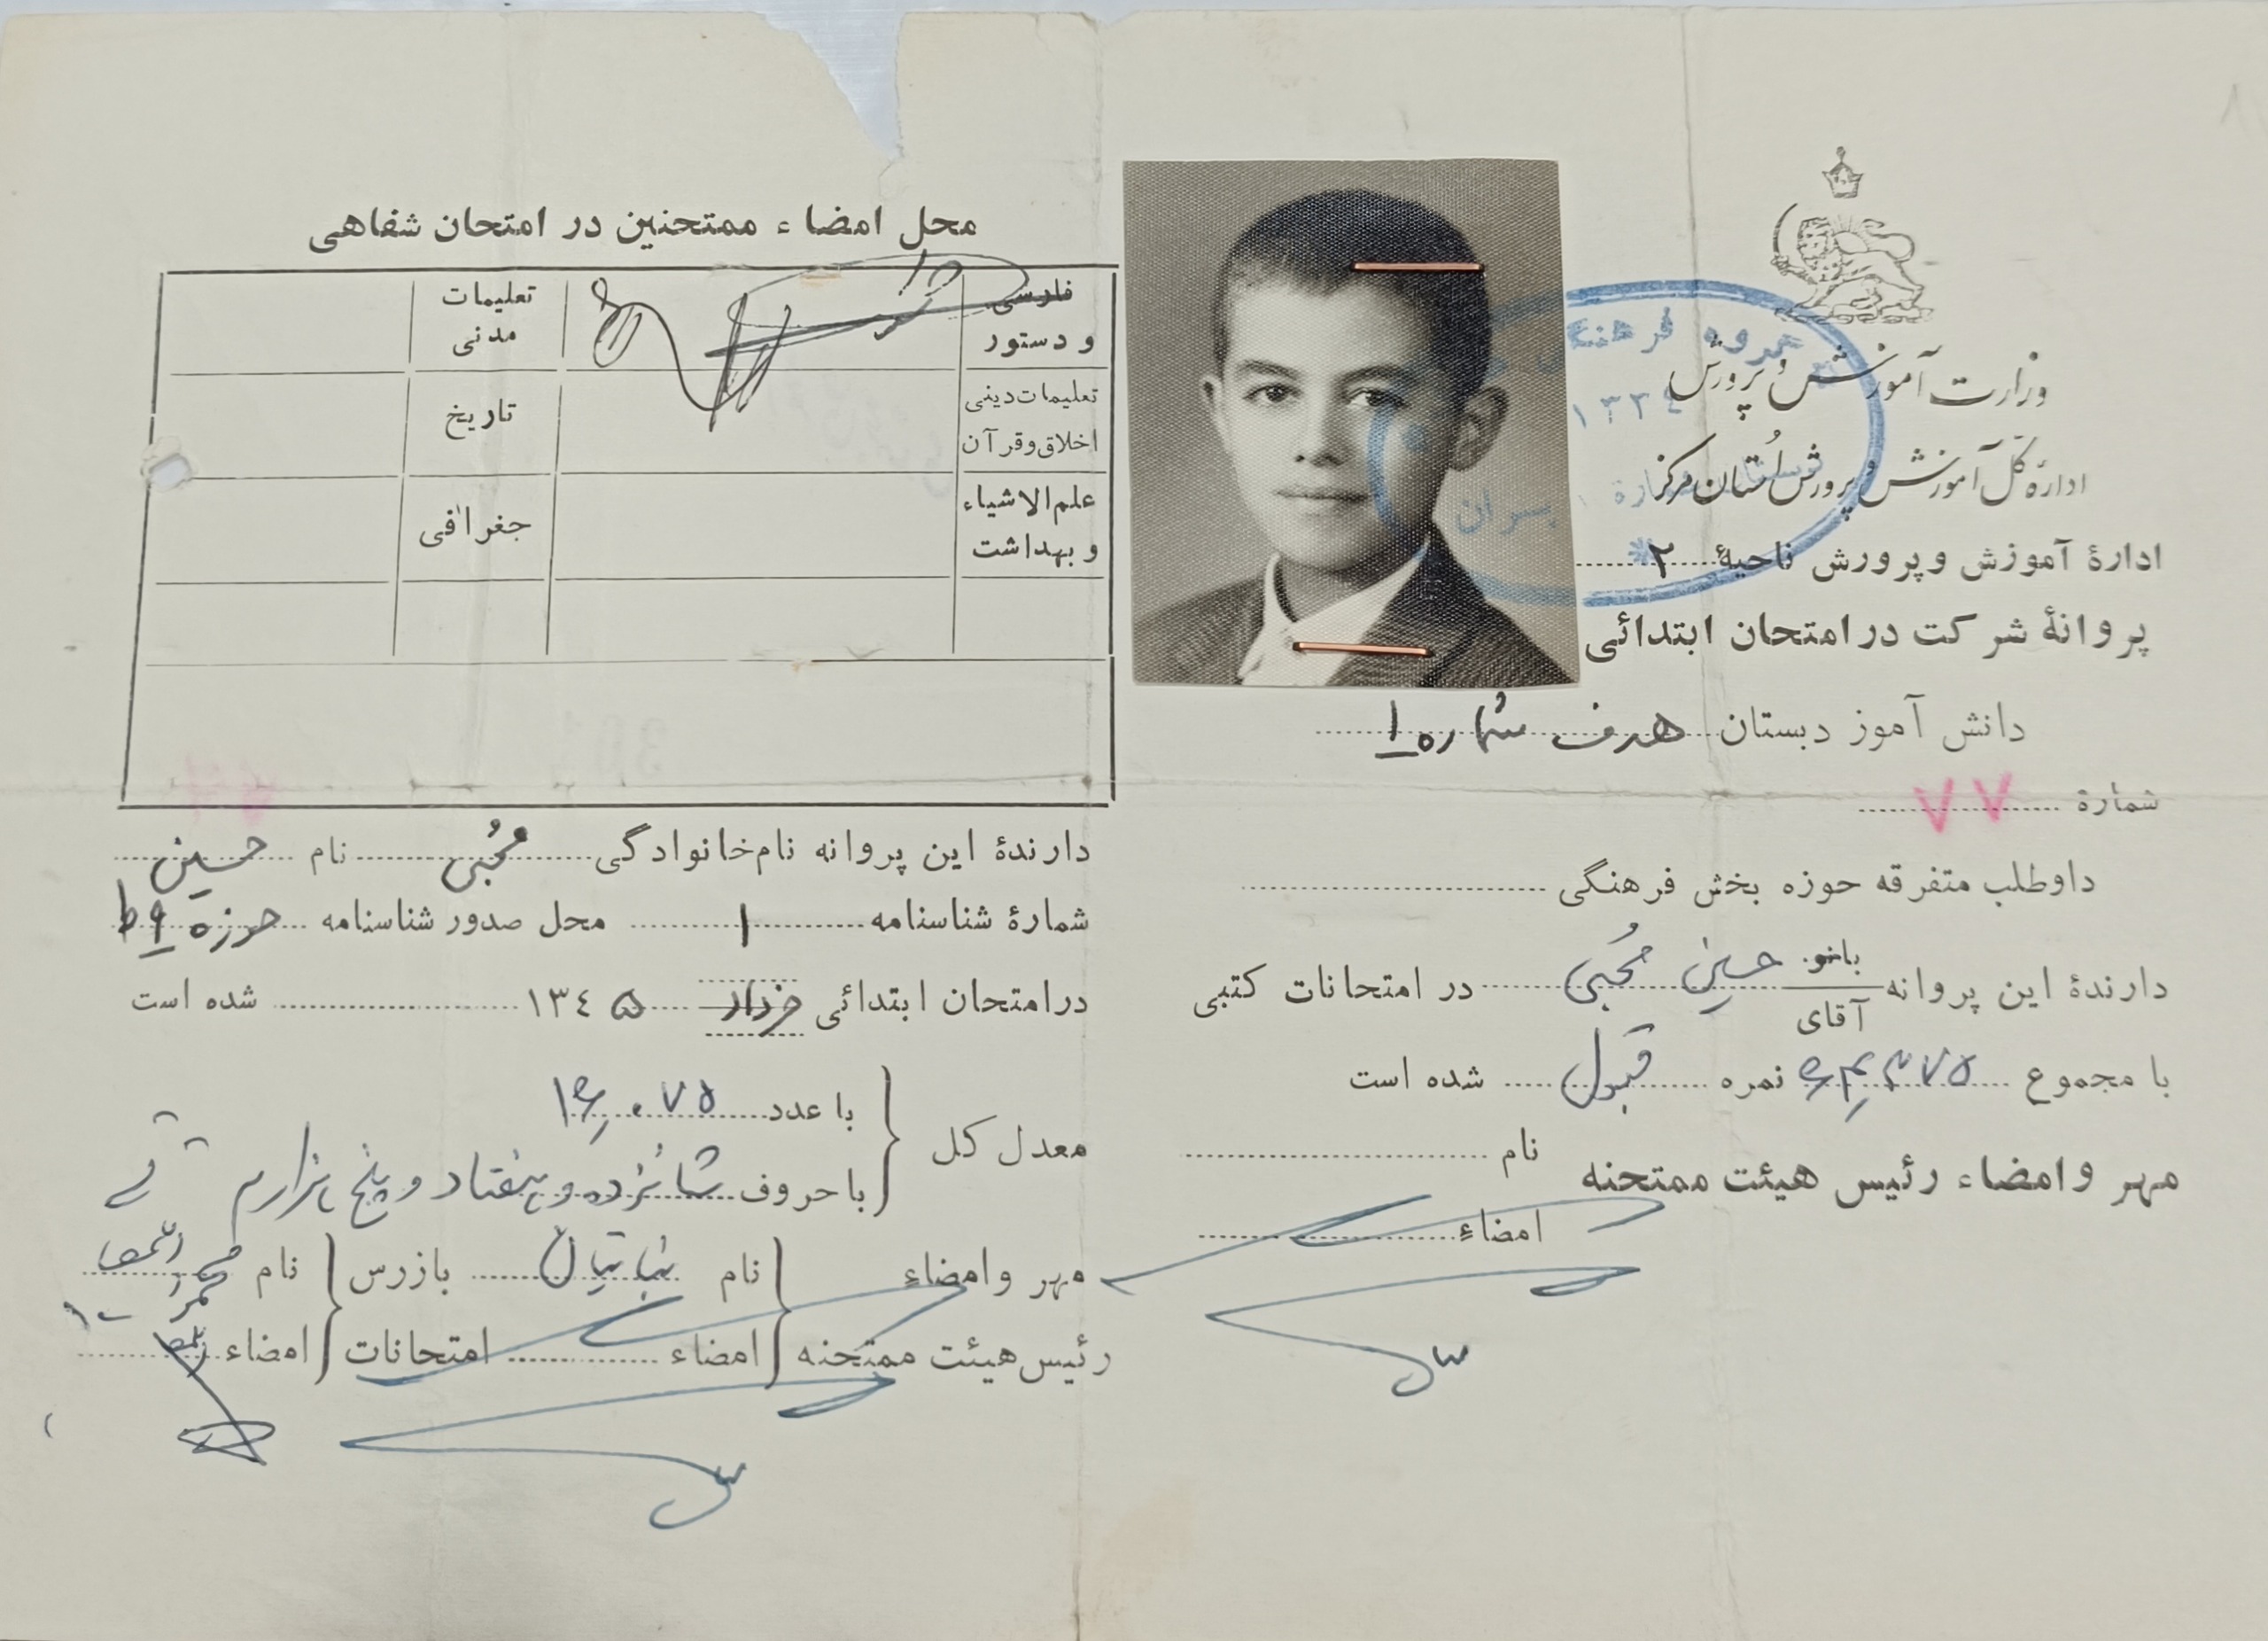 وزارت آموزش و پرورش
ادارهٔ کل آموزش و پرورش استان مرکز
ادارهٔ آموزش و پرورش ناحیهٔ ۲
پروانهٔ شرکت در امتحان ابتدائی
گروه فرهنگی
۱۳۳٤
شمارهٔ ۱ پسران
دانش آموز دبستان هدف شماره ۱
شمارهٔ ۷۷
داوطلب متفرقه حوزه بخش فرهنگی
دارندهٔ این پروانه بانو آقای حسین محبی در امتحانات کتبی
با مجموع نمره قبول شده است
مهر و امضاء رئیس هیئت ممتحنه
نام
امضاء
محل امضاء ممتحنین در امتحان شفاهی
فارسی و دستور
تعلیمات مدنی
تعلیمات دینی اخلاق و قرآن
تاریخ
علم الاشیاء و بهداشت
جغرافی
دارندهٔ این پروانه نام خانوادگی محبی نام حسین
شمارهٔ شناسنامه ۱ محل صدور شناسنامه حوزه
در امتحان ابتدائی خرداد ۱۳٤۵ شده است
معدل کل
با عدد ۱۶٫۰۷۵
با حروف شانزده و هفتاد و پنج هزارم
مهر و امضاء رئیس هیئت ممتحنه
نام
امضاء
بازرس امتحانات
نام
امضاء